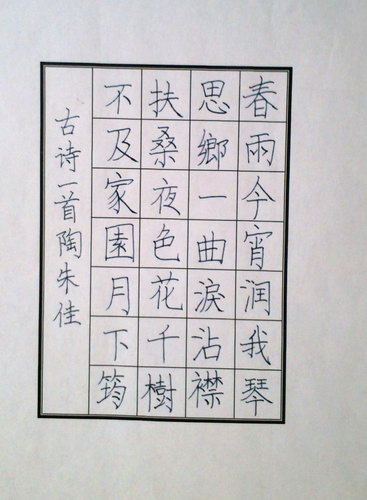 春雨今宵润我琴
思鄉一曲淚沾襟
扶桑夜色花千樹
不及家園月下筠
古诗一首陶朱佳